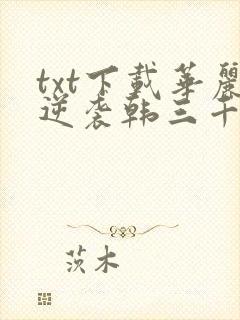 txt下載華麗
逆袭韩三千
茨木